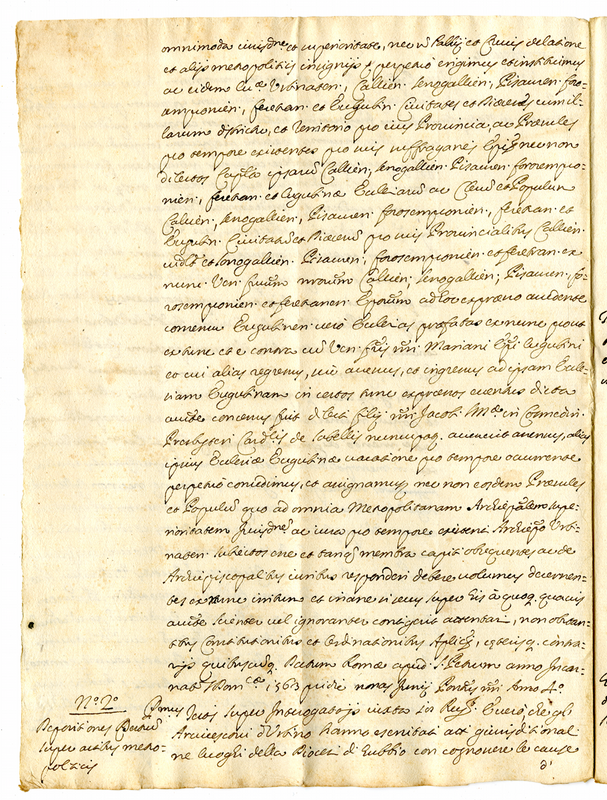 omnimoda iurisd.ne et superioritate, nec n Pallij et Crucis delatione
et alijs metropoliticis insignijs perpetuo erigimus et instituimus
ac eidem Urbinaten. Callien. Senogallien. Pisauren. foro-
simpronien. feretran. et Eugubin. Civitates et Dioeceses cum il-
larum districtu, et Territorio pro eius Provincia, ac Praesules
pro tempore existentes pro suis suffraganeis nec non
dilectos Capitula ipsarum Callien. Senogallien. Pisauren. forosempro-
nien. feretran. et Eugubinae Ecclesiarum ac Clerum et Populum
Callien. Senogallien. Pisauren. forosempronien., feretran. et
Eugubin. Civitatum et Dioecesum pro suis Provincialibus Callien.
videlt et Senogallien. Pisauren. forosempronien. et feretran. ex
nunc Ven. frum nrorum Callien. Senogallien. Pisauren. fo-
rosempronien. et feretranen. Eporum ad hoc expresso accedente
consensu Eugubinen. vero Ecclesias praefatas ex nunc prout
ex tunc et e contra cum Ven. fris nri Mariani Epi Eugubini
et cui alias regressus, sive accessus, et ingressus ad ipsam Eccle-
siam Eugubinam in certos tunc expressos eventus dicta
aucte concessus fuit dilecti filij nri Jacobi in Cosmedin
Presbyteri Card.lis de Sabellis nuncupat. accesserit assensus, alias
ipsius Ecclesiae Eugubinae vacatione pro tempore occurrente
perpetuo concedimus, et assignamus, nec non eosdem Praesules
et Populum quo ad omnia Metropolitanam Archiepalem supe-
rioritatem Jurisd.nem ac iura pro tempore existenti Archiepo Urbi-
naten. subiectos esse et tanq membra capiti obsequentes, ac de
Archiepiscopalibus iuribus responderi debere volumus decernen-
tes ex nunc irritum et inane si secus super eis a quoq. quavis
aucte scienter vel ignoranter contigerit attentari, non obstan-
tibus Constitutionibus et Ordinationibus Aplicis, ceterisq. contra-
rijs quibuscunq. Datum Romae apud S. Petrum anno Incar-
nat. Dom.cae 1563 pridie nonas Junij Pontus nri Anno 4.o
N.o 2.o
Depositiones
super actibus metro-
politicis
Primus
Testis super Interrogatorijs iuxta è vero, che gli
Arcivescovi d'Urbino hanno esercitati atti giurisditionali
ne luoghi della Diocesi di Gubbio con cognoscere le cause
d'